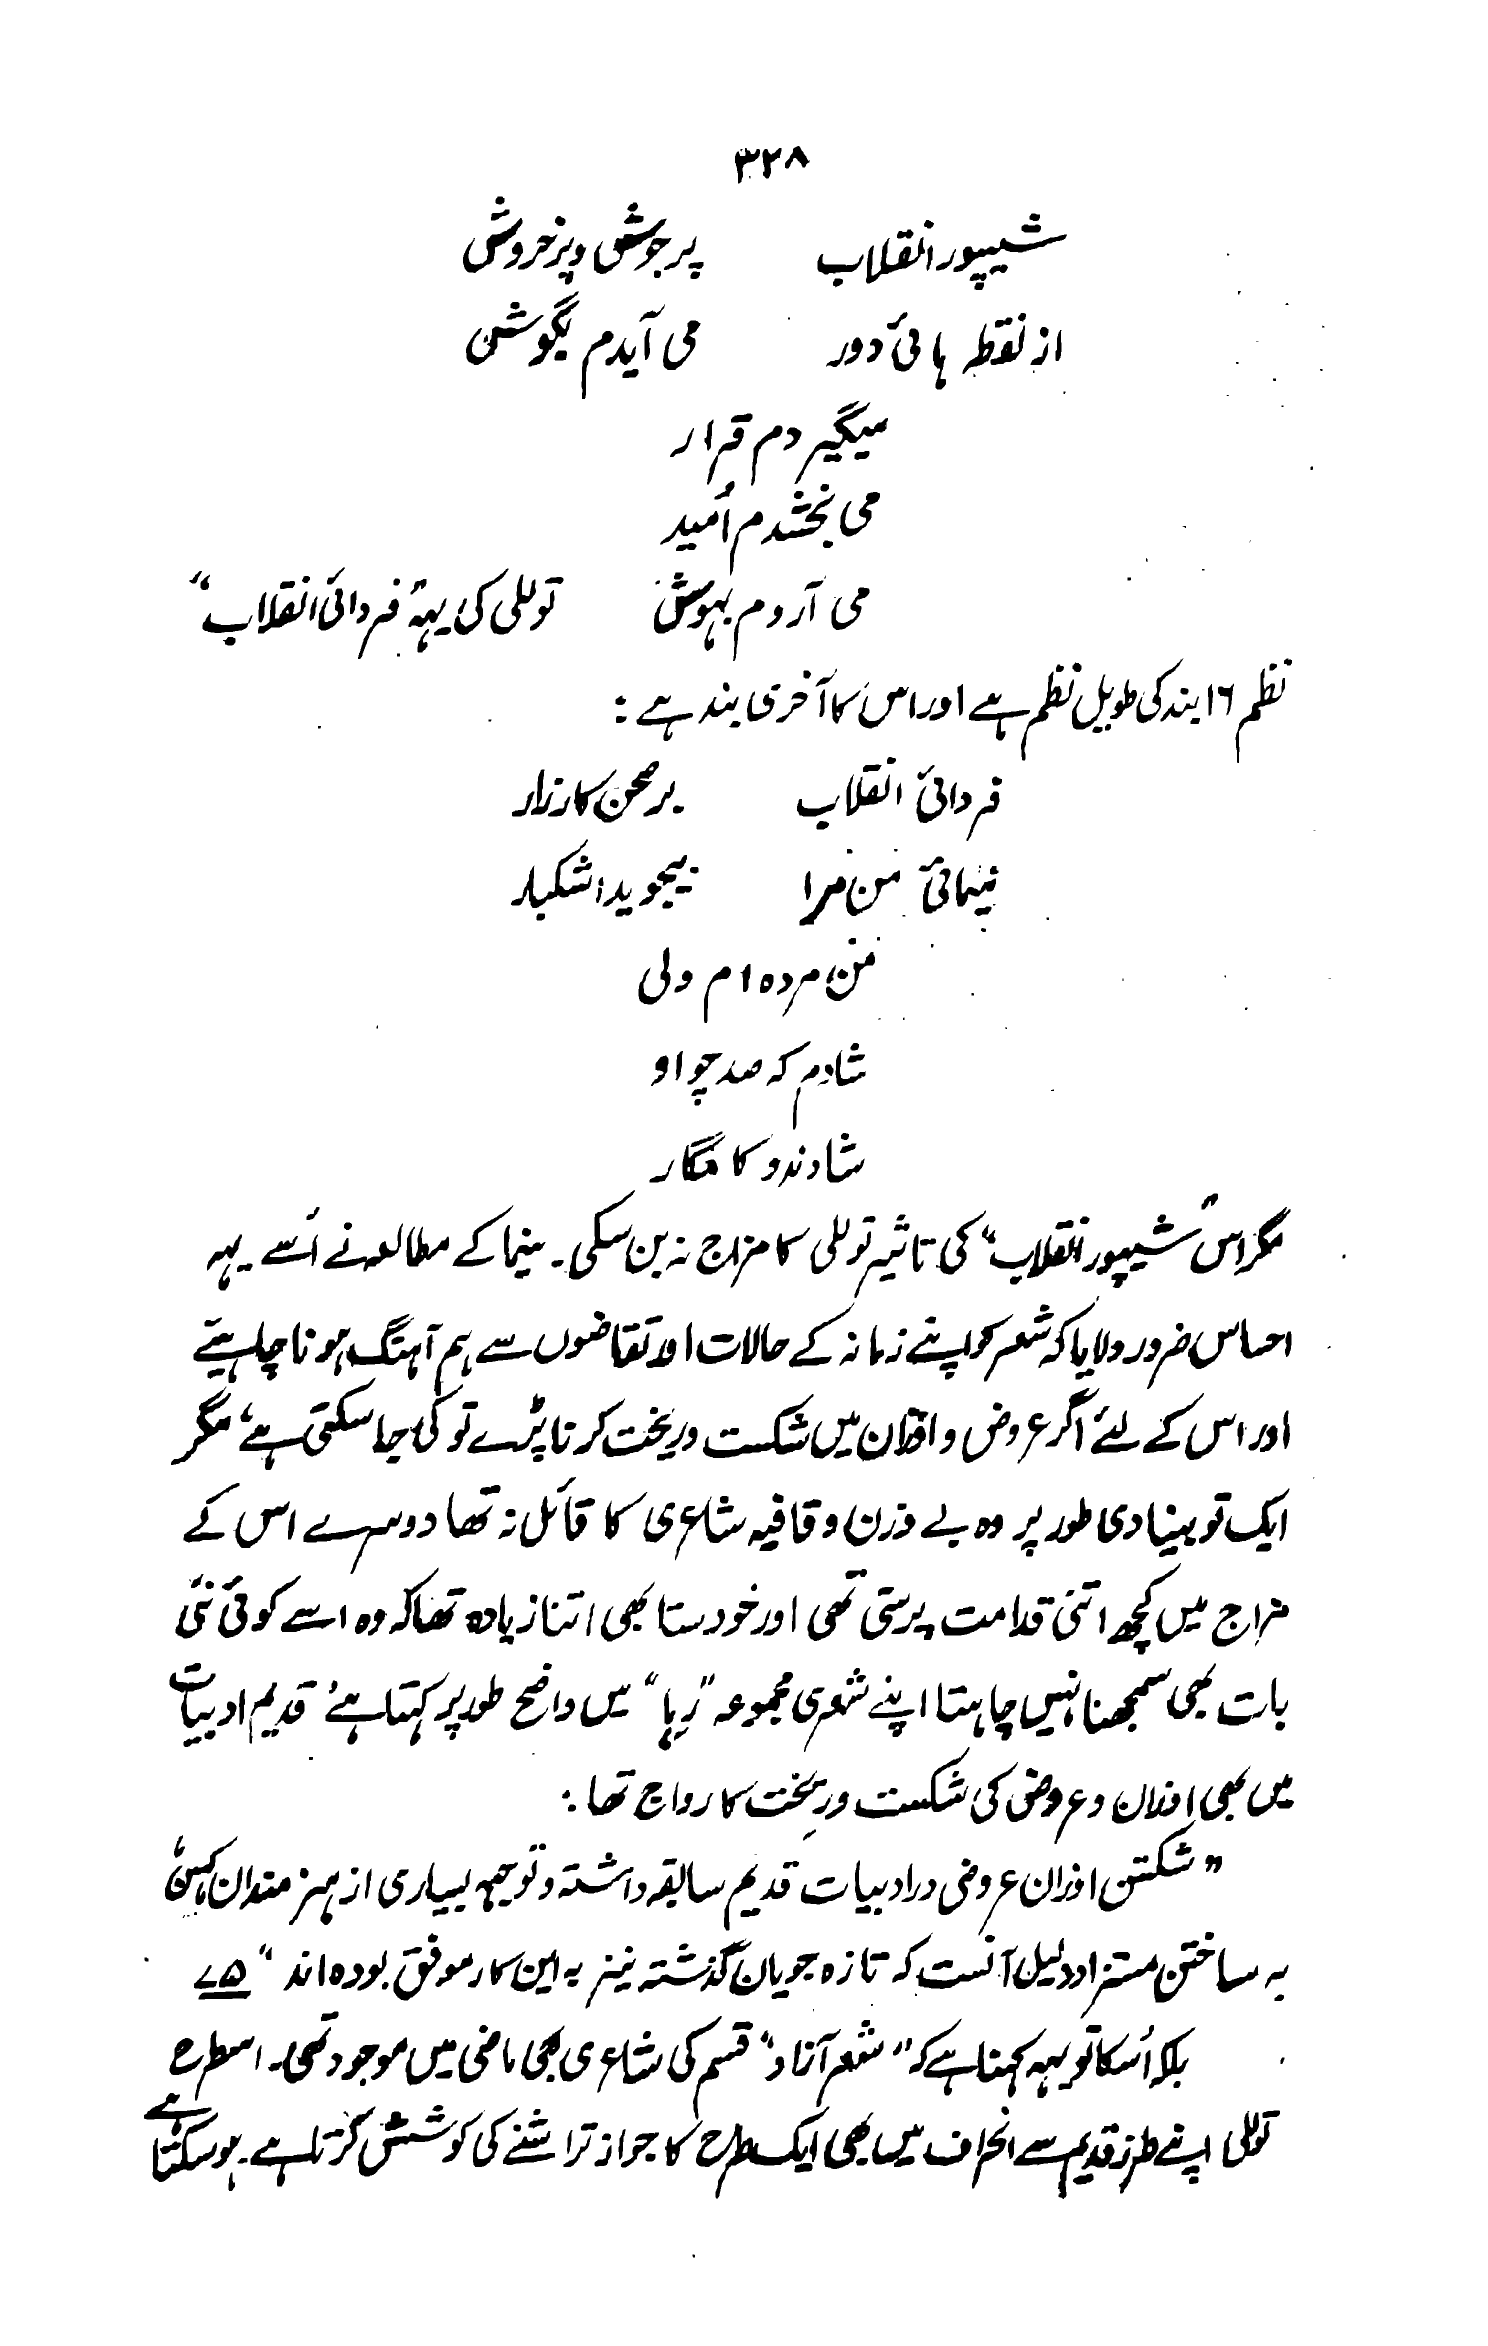 ۳۲۸
شیپور انقلاب پر جوش و پر خروش
از نقطہ ہائی دور می آیدم بگوش
میگیردم قرار
می بخشدم اُمید
می آردم بہوش توللی کی یہہ "فردائی انقلاب"
نظم ۱۶ بند کی طویل نظم ہے اور اس کا آخری بند ہے :
فردائی انقلاب بر صحن کارزار
نیمائی من مرا بیجوید اشکبار
من مردہ ام ولی
شادم کہ صد چو او
شادند و کامگار
مگر اس "شیپور انقلاب" کی تاثیر توللی کا مزاج نہ بن سکی۔ نیما کے مطالعہ نے اُسے یہہ
احساس ضرور دلایا کہ شعر کو اپنے زمانہ کے حالات اور تقاضوں سے ہم آہنگ ہونا چاہیئے
اور اس کے لئے اگر عروض و اوزان میں شکست و ریخت کرنا پڑے تو کی جا سکتی ہے، مگر
ایک تو بنیادی طور پر وہ بے وزن و قافیہ شاعری کا قائل نہ تھا دوسرے اس کے
مزاج میں کچھ اتنی قدامت پرستی تھی اور خود ستا بھی اتنا زیادہ تھا کہ وہ اسے کوئی نئی
بات بھی سمجھنا نہیں چاہتا اپنے شعری مجموعہ "رہا" میں واضح طور پر کہتا ہے قدیم ادبیات
میں بھی اوزان و عروض کی شکست و ریخت کا رواج تھا :
"شکستن اوزان عروضی در ادبیات قدیم سابقہ داشتہ و توجیہہ بسیاری از ہنر مندان کہن
بہ ساختن مستزاد دلیل آنست کہ تازہ جویان گذشتہ نیز بہ این کار موفق بودہ اند" ۷۵
بلکہ اُسکا تو یہہ کہنا ہے کہ "شعر آزاد" قسم کی شاعری بھی ماضی میں موجود تھی۔ اسطرح
توللی اپنے طرز قدیم سے انحراف میں بھی ایک طرح کا جواز تراشنے کی کوشش کرتا ہے۔ ہو سکتا ہے